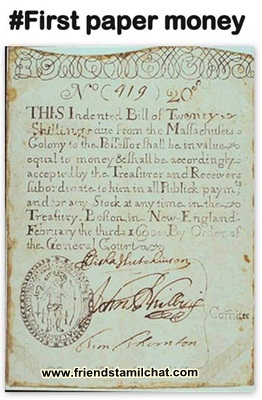 #First paper money
No (919) 20s
THIS Indented Bill of Twenty
Shillings due from the Massachusets
Colony to the Possessor shall be in value
equal to money & shall be accordingly
accepted by the Treasurer and Receivers
subordinate to him in all Publick paymts
and for any Stock at any time in the
Treasury. Boston in New-England
February the third 1690. By Order of
the General Court
Elisha Hutchinson
John Phillips
Tim Thornton
www.friendstamilchat.com